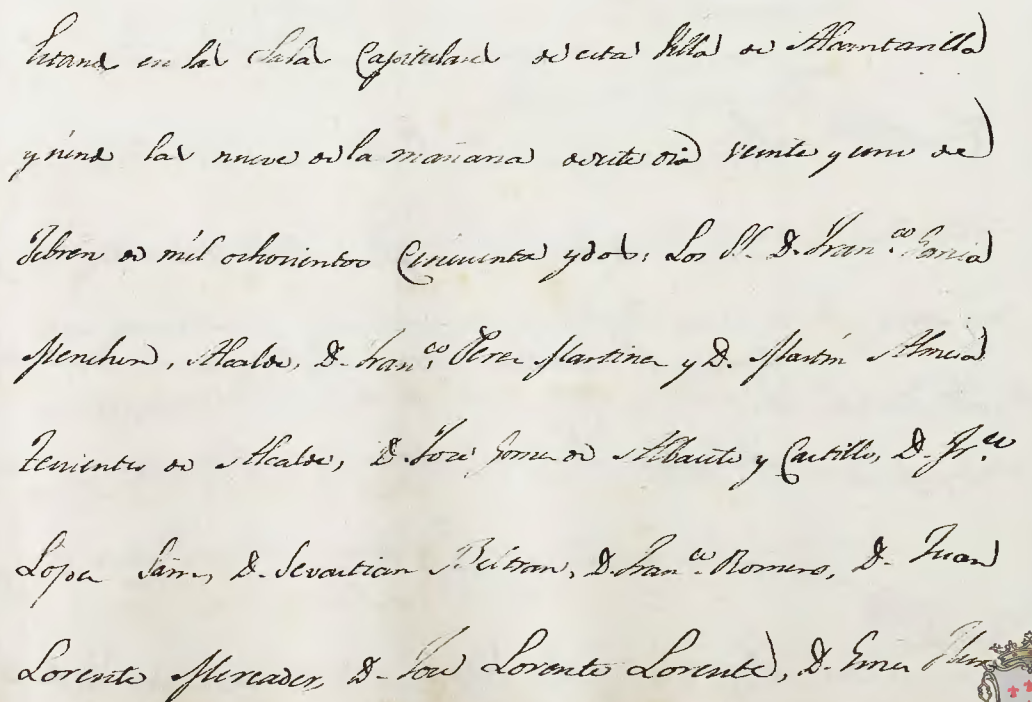 Estand en la Sala Capitular de esta Villa de Alcantarilla
y siend las nueve de la mañana de este dia veinte y uno de
Febren de mil ochocientos Cincuenta y dos; Los SS. D. Fran.co Garcia
Menchon, Alcalde, D. Fran.co Perez Martinez y D. Martin Almela
Tenientes de Alcalde, D. Jose Gomez de Albacete y Castillo, D. Fr.co
Lopez D. Sevastian Beltran, D. Fran.co Romero, D. Juan
Lorente Mercader, D. Jose Lorente Lorente, D.